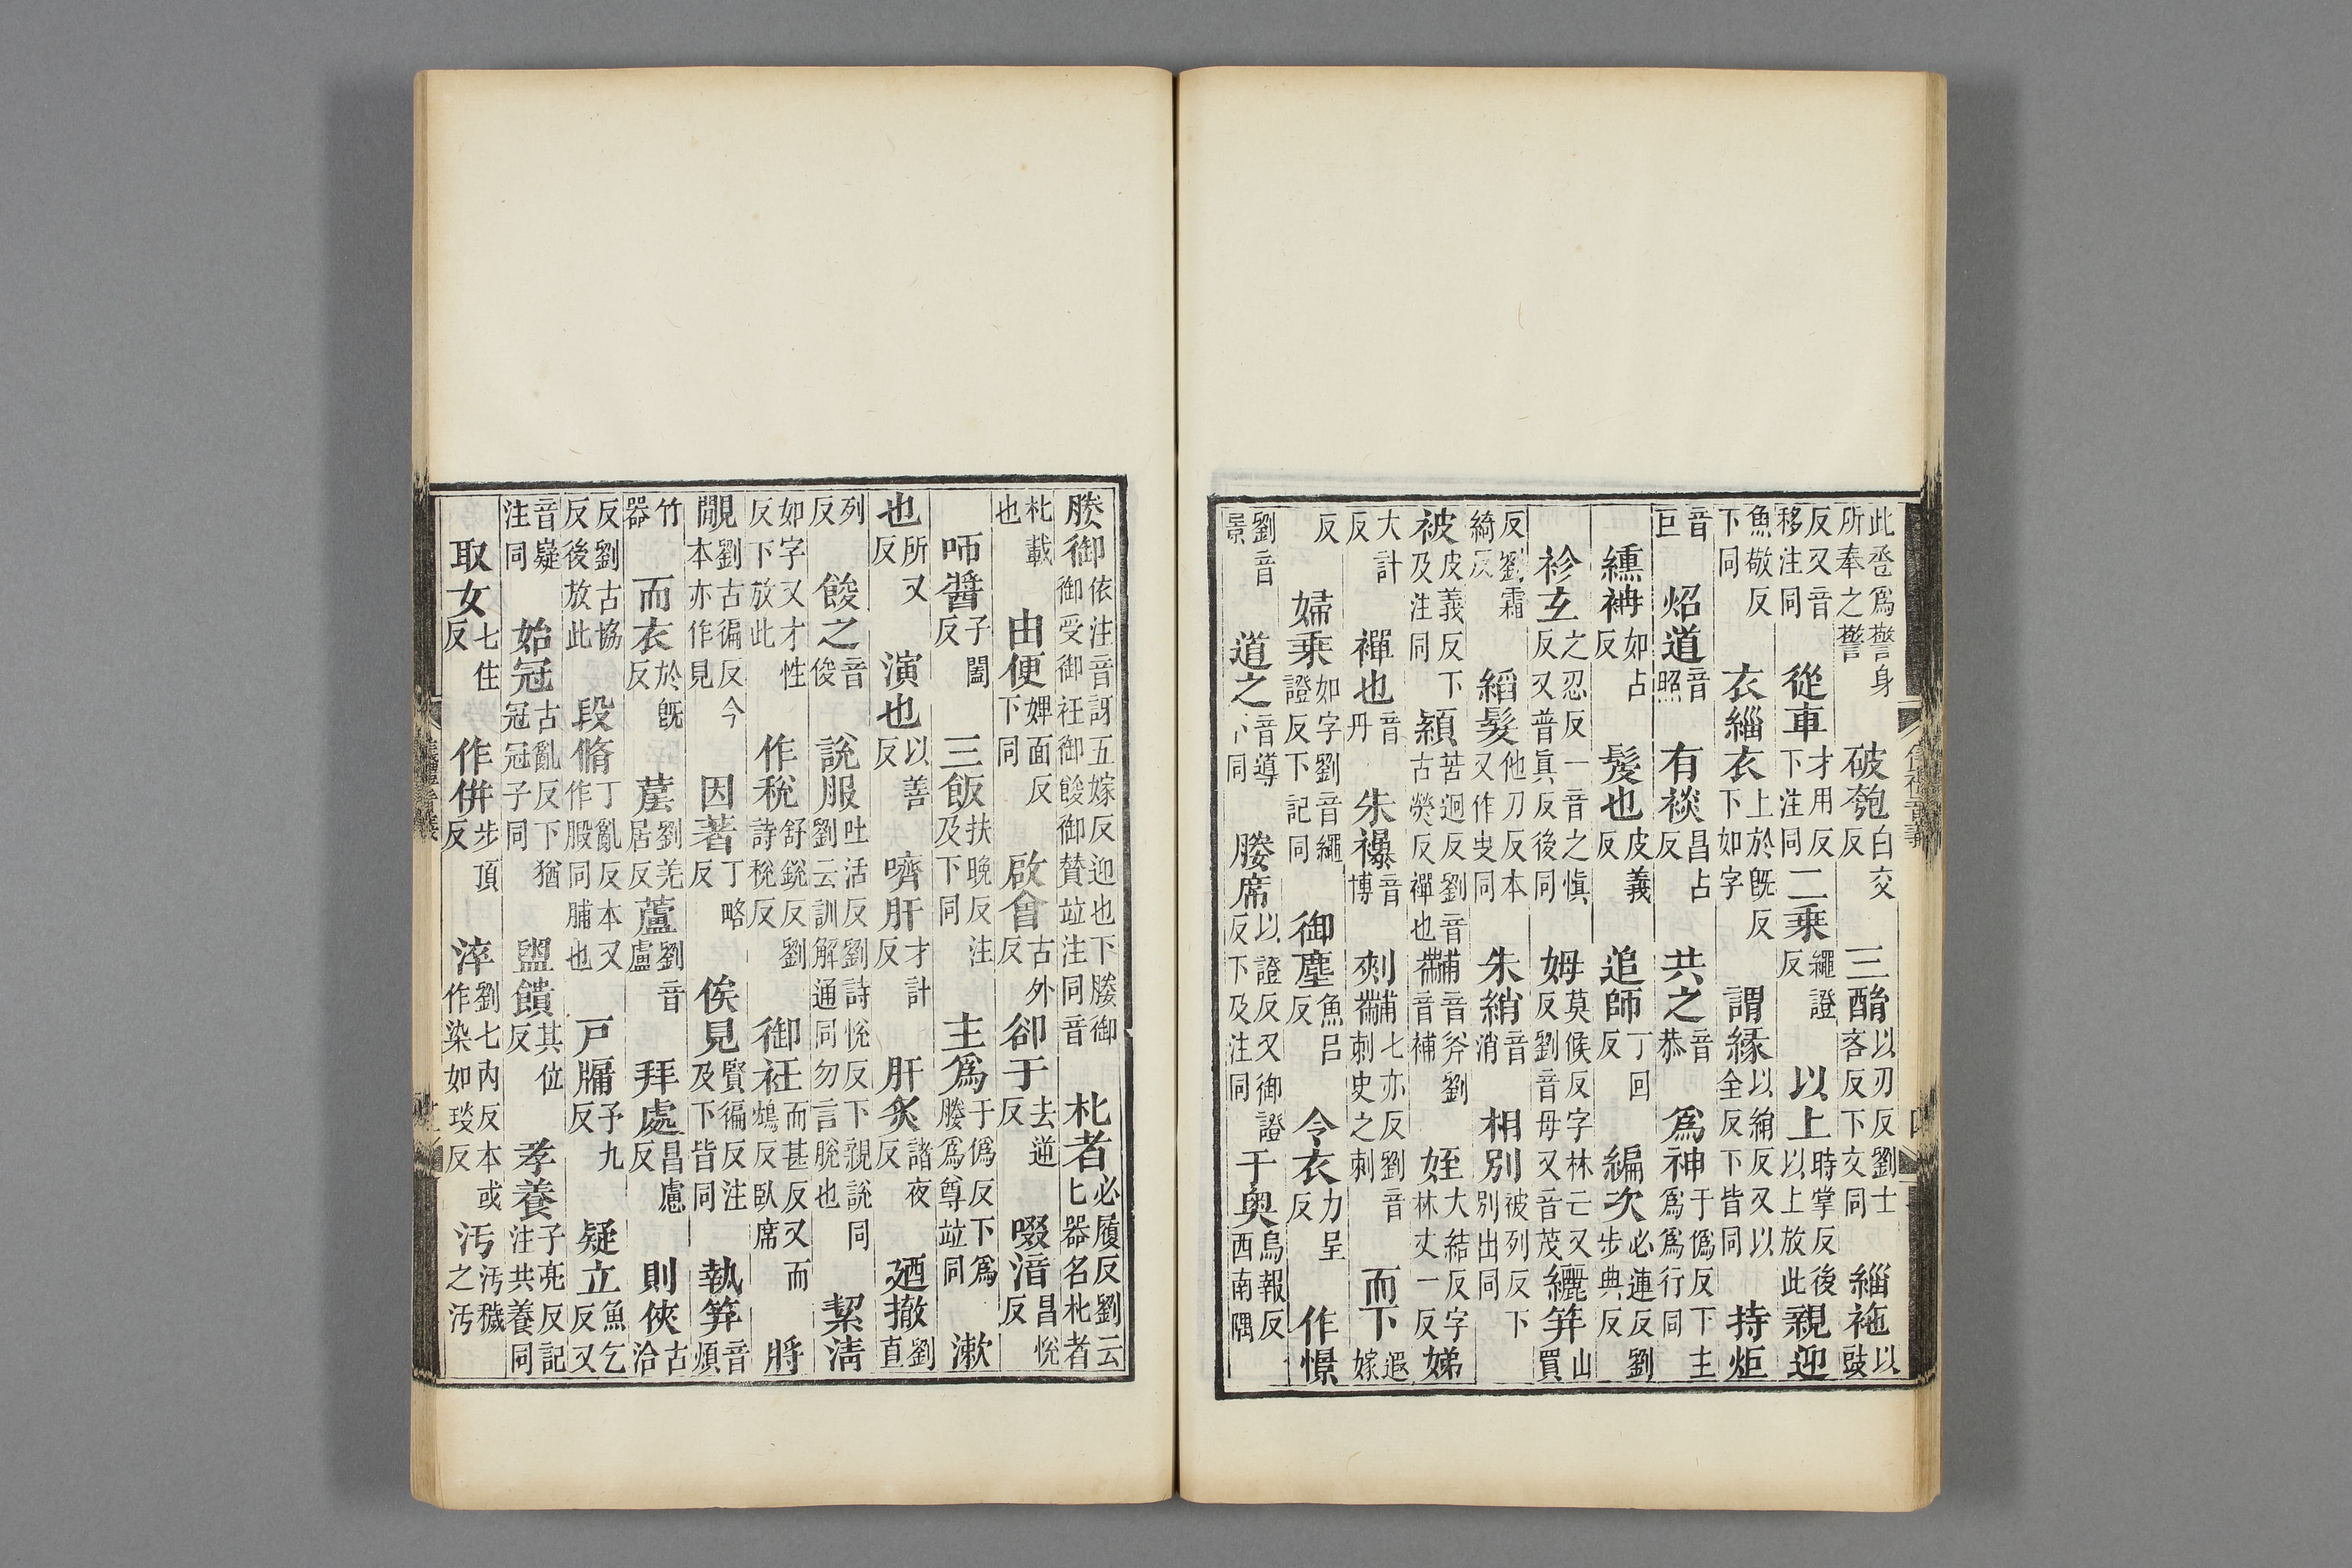 此卺為謷身所奉之謷 破匏白交反 三酳以刃反劉士吝反下交同 緇袘以豉
反又音移注同 從車才用反下注同 二乘繩證反 以上時掌反後以上放此 親迎
魚敬反下同 衣緇衣上於既反下如字 謂緣以絹反又以全反下皆同 持炬
音巨 炤道音照 有裧昌占反 共之音恭 為神于偽反下主為為行同
纁袡如占反 髲也皮義反 追師丁回反 編次必連反劉步典反
袗玄之忍反一音之慎反又普真反後同 姆莫候反字林亡又反劉音母又音茂 纚笄山買
反劉霜綺反 縚髮他刀反本又作叟同 朱綃音消 相別被列反下別出同
被皮義反下及注同 潁苦迥反劉音古熒反襌也 黼音斧劉音補 姪大結反字林丈一反 娣
大計反 襌也音丹 朱襮音博 刺黼七亦反劉音刺史之刺 而下遐嫁
反 婦乘如字劉音繩證反下記同 御塵魚呂反 令衣力呈反 作憬
劉音景 道之音導下同 媵席以證反又御證反下及注同 于奧烏報反西南隅
儀禮音義
媵御依注音訝五嫁反迎也下媵御御受御衽御餕御贊竝注同音 朼者必履反劉云匕器名朼者
朼載也 由便婢面反下同 啟會古外反 卻于去逆反 啜湆昌悅反
咂醬子闔反 三飯扶晚反注及下同 主為于偽反下為媵為尊竝同 漱
也所又反 演也以善反 嚌肝才計反 肝炙諸夜反 廼撤直劉
列反 餕之音俊 說服吐活反劉詩悅反下親說同劉云訓解通同勿言脫也 絜清
如字又才性反下放此 作稅舒銳反劉詩稅反 御衽而甚反又而鴆反臥席 將
見劉古徧反今閒本亦作見 因著丁略反 俟見賢徧反注及下皆同 執笲音煩
竹器 而衣於既反 䈰劉羌居反 蘆劉音盧 拜處昌慮反 則俠古洽
反劉古協反後放此 段脩丁亂反本又作腶同脯也 戶牖予九反 疑立魚乞反又
音嶷注同 始冠古亂反下猶冠冠子同 盥饋其位反 孝養子亮反記注共養同
取女七住反 作併步頂反 淬劉七內反本或作染如琰反 汚汚穢之汚